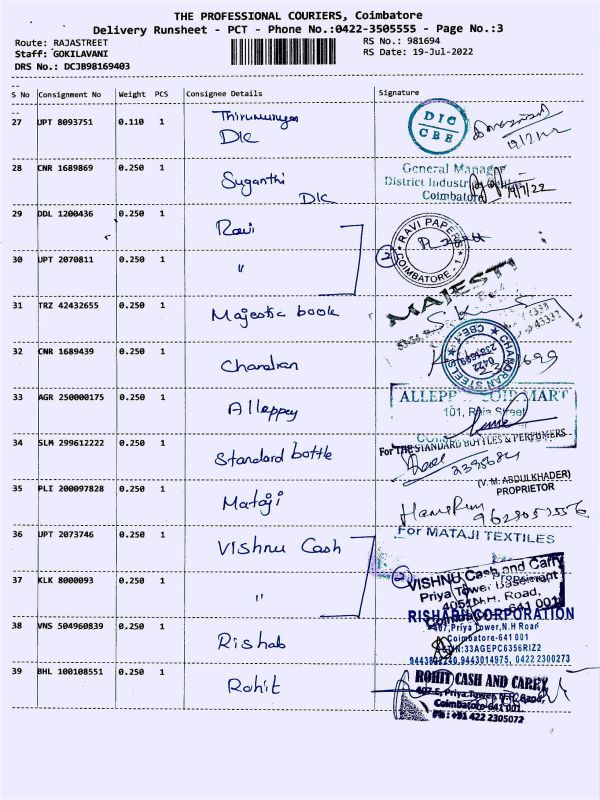 THE PROFESSIONAL COURIERS, Coimbatore
Delivery Runsheet - PCT - Phone No.:0422-3505555 - Page No.:3
Route: RAJASTREET
RS No.: 981694
Staff: GOKILAVANI
RS Date: 19-Jul-2022
DRS No.: DCJB98169403
S No Consignment No Weight PCS Consignee Details Signature
27 UPT 8093751 0.110 1
DIC
DIC
CBE
28 CNR 1689869 0.250 1 Suganthi
DIC
General Manager
District Industries
Coimbatore
19/7/22
29 DDL 1200436 0.250 1 Ravi
RAVI PAPERS
COIMBATORE - 1
30 UPT 2070811 0.250 1 "
2
31 TRZ 42432655 0.250 1 Majestic book
MAJESTI
32 CNR 1689439 0.250 1 Chandran
CHANDRAN STEELS
CBE-1
0422
33 AGR 250000175 0.250 1 Alleppey
ALLEPP COIR MART
101, Raja Street
34 SLM 299612222 0.250 1 Standard bottle
For THE STANDARD BOTTLES & PERFUMERS
(V. M. ABDULKHADER)
PROPRIETOR
35 PLI 200097828 0.250 1 Mataji
For MATAJI TEXTILES
36 UPT 2073746 0.250 1 Vishnu Cash
37 KLK 8000093 0.250 1 "
2
VISHNU Cash and Carry
Priya Tower Basement
405 N.H. Road,
641 001
38 VNS 504960839 0.250 1 Rishab
RISHABH CORPORATION
407,Priya Tower,N.H Road
Coimbatore-641 001
:33AGEPC6356R1Z2
9443014975, 0422 2300273
39 BHL 100108551 0.250 1 Rohit
ROHIT CASH AND CARRY
407-E, Priya Tower, N.H. Road,
Coimbatore-641 001
Ph : +91 422 2305072